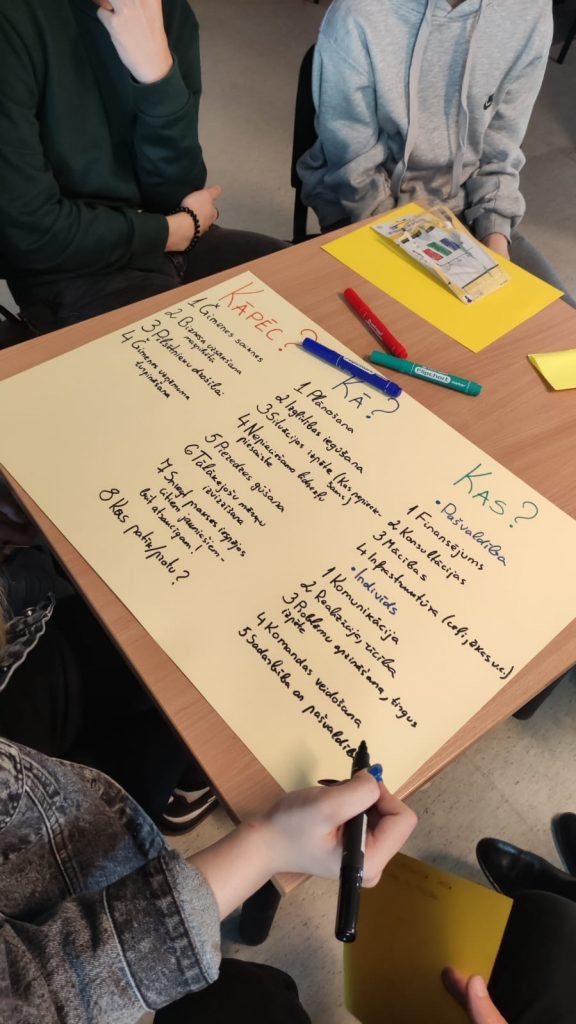 KĀPĒC?
1 Ģimenes saknes
2 Biznesa virzīšana
3 Pilsētnieku drošībai
4 Ģimenes uzņēmuma
turpināšana
KĀ?
1 Plānošana
2 Izglītības iegūšana
3 Situācijas izpēte (Kas nepieciešams.)
4 Nepieciešamo līdzekļu
piesaiste
5 Pieredzes gūšana
6 Tālākejošu mērķu
izvirzīšana
7 Sniegt iespējas
citiem jauniešiem
būt atvērtiem!
8 Kas patīk/piotu?
KAS?
• Pašvaldība
1 Finansējums
2 Konsultācijas
3 Mācības
4 Infrastruktūra (ceļi, ēkas u.c.)
• Indivīds
1 Komunikācija
2 Realizācija, rīcība
3 Problēmu apzināšana, tirgus
izpēte
4 Komandas veidošana
5 Sadarbība ar pašvaldību
flipchart